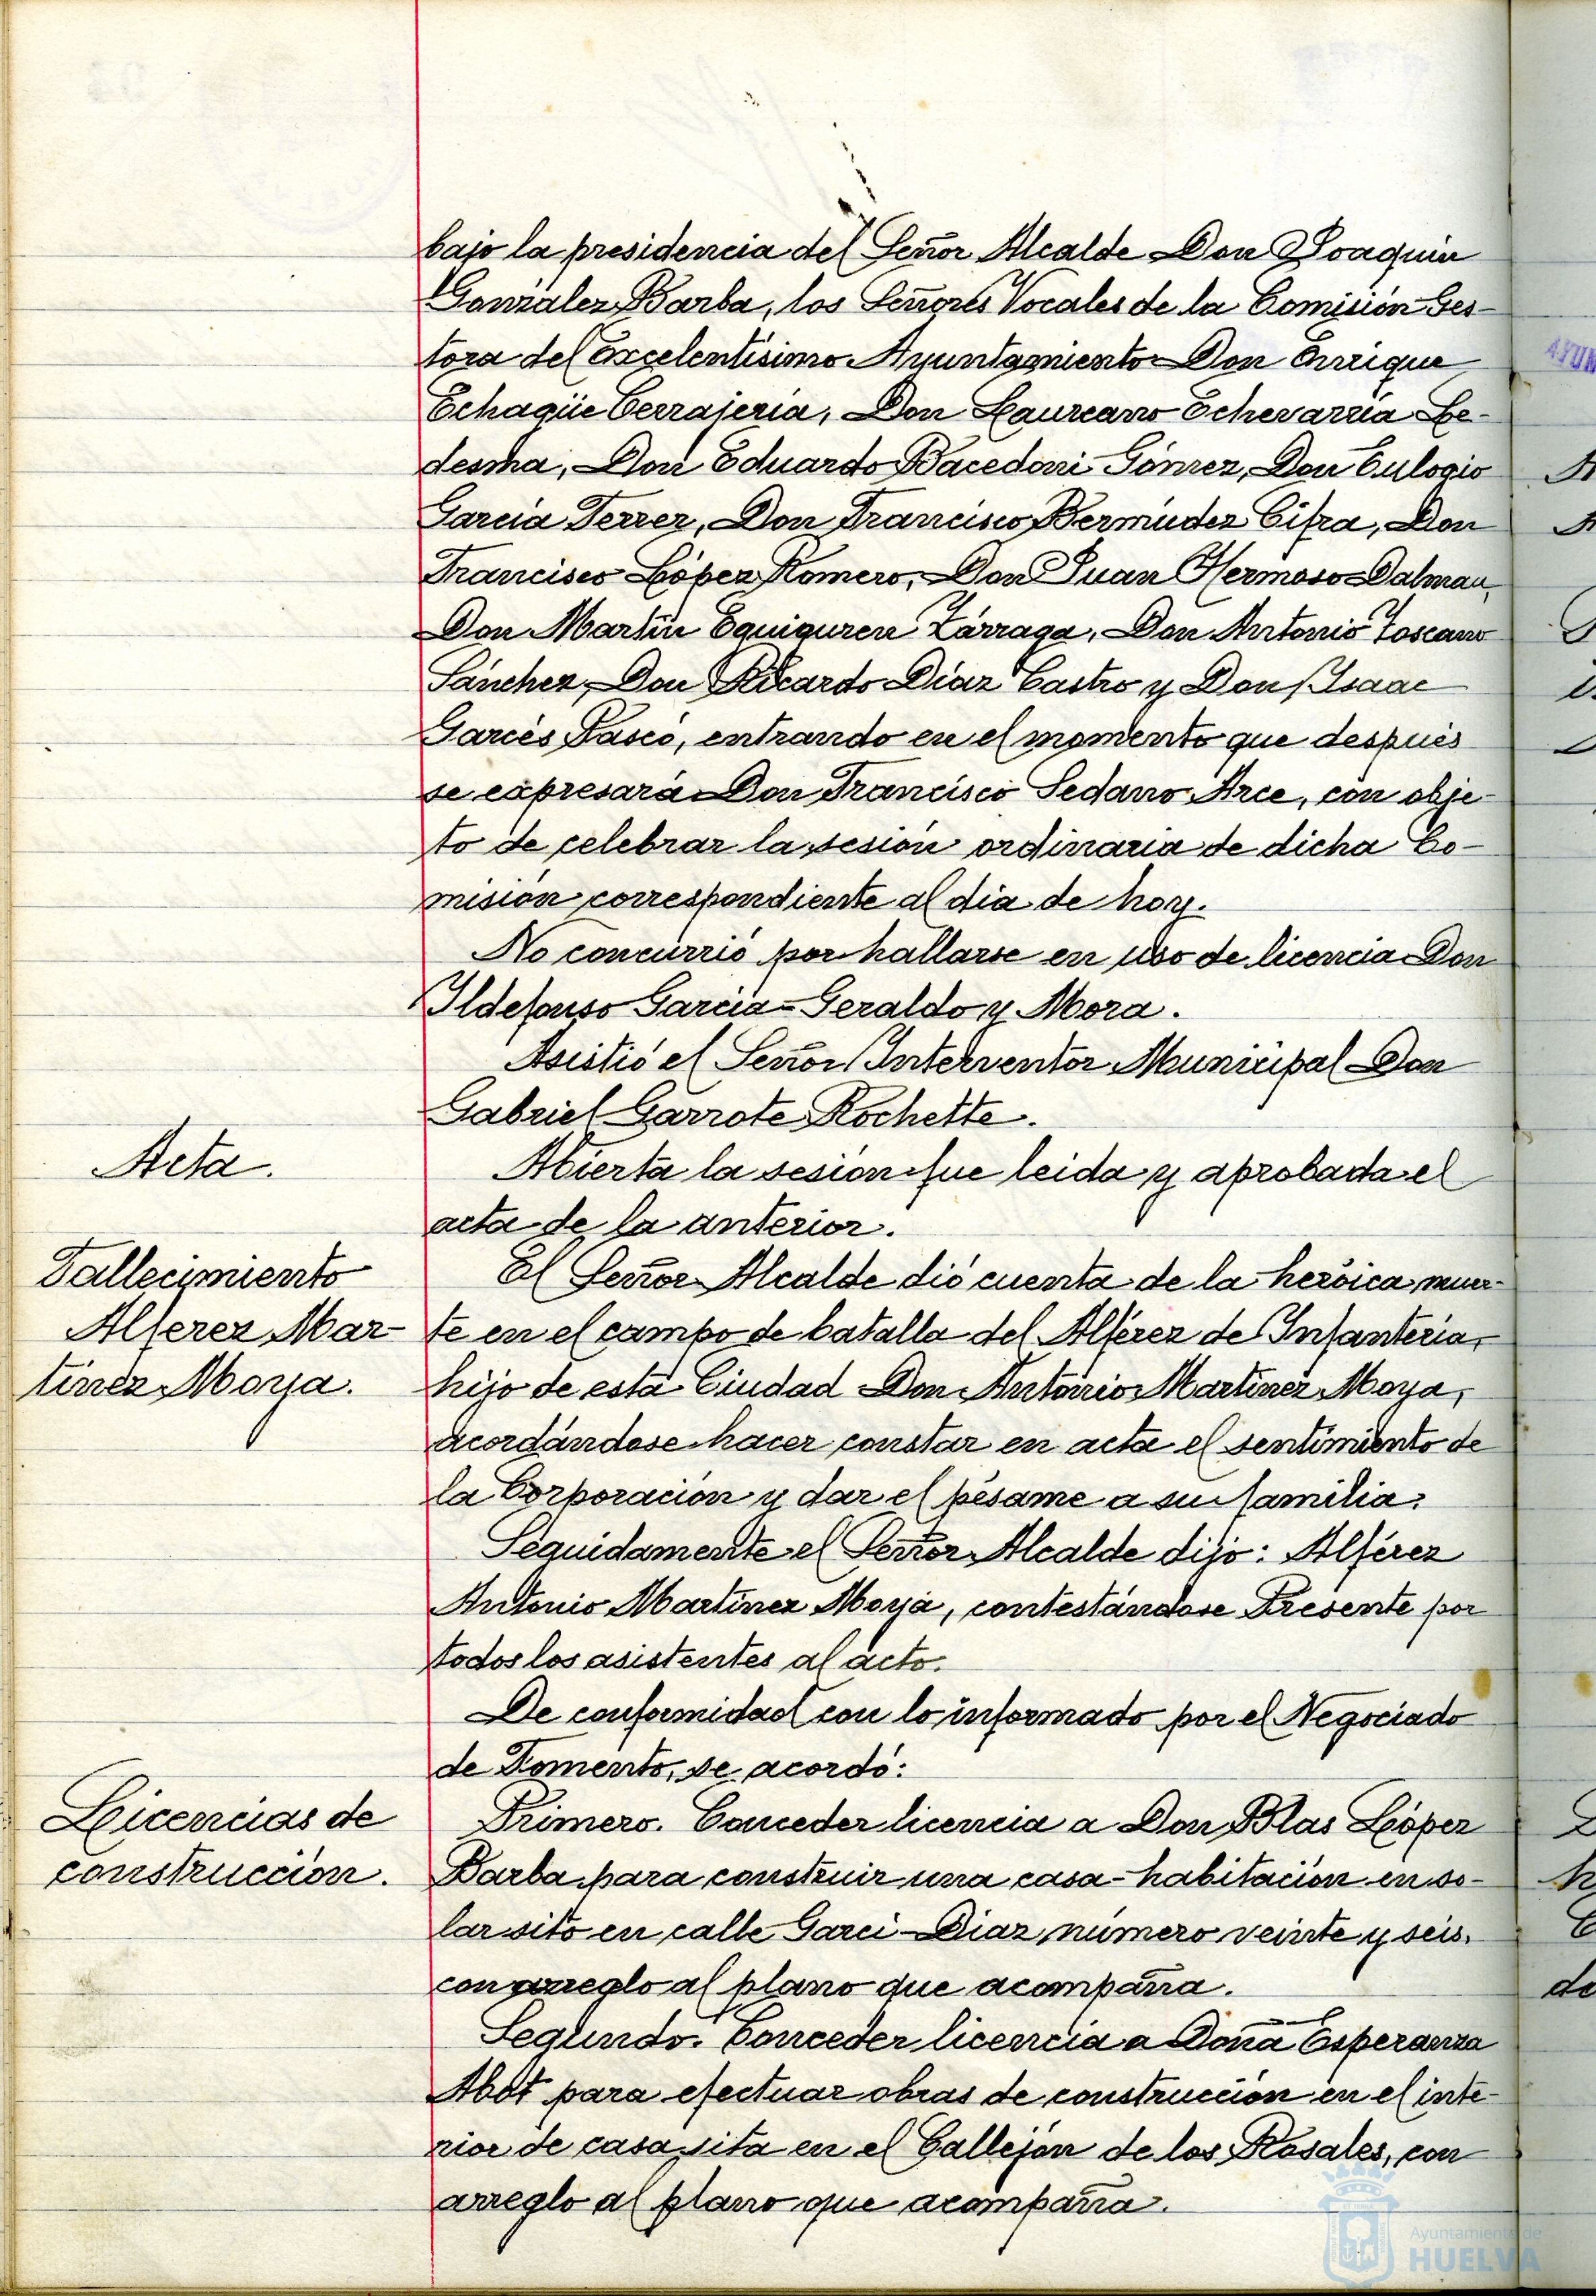 bajo la presidencia del Señor Alcalde Don Joaquín
González Barba, los Señores Vocales de la Comisión Ges-
tora del Excelentísimo Ayuntamiento Don Enrique
Echagüe Cerrajería, Don Laureano Echevarría Le-
desma, Don Eduardo Bacedoni Gómez, Don Eulogio
García Ferrer, Don Francisco Bermúdez Cifra, Don
Francisco López Romero, Don Juan Hermoso Dalmau,
Don Martín Eguiguren Zárraga, Don Antonio Toscano
Sánchez, Don Ricardo Díaz Castro y Don Isaac
Garcés Pasco, entrando en el momento que después
se expresará Don Francisco Sedano Arce, con obje-
to de celebrar la sesión ordinaria de dicha Co-
misión correspondiente al día de hoy.
No concurrió por hallarse en uso de licencia Don
Ildefonso García-Geraldo y Mora.
Asistió el Señor Interventor Municipal Don
Gabriel Garrote Rochette.
Acta.
Abierta la sesión fue leida y aprobada el
acta de la anterior.
Fallecimiento
Alferez Mar-
tinez Moya.
El Señor Alcalde dió cuenta de la heróica muer-
te en el campo de batalla del Alférez de Infantería,
hijo de esta Ciudad Don Antonio Martínez Moya,
acordándose hacer constar en acta el sentimiento de
la Corporación y dar el pésame a su familia.
Seguidamente el Señor Alcalde dijo: Alférez
Antonio Martínez Moya, contestándose Presente por
todos los asistentes al acto.
De conformidad con lo informado por el Negociado
de Fomento, se acordó:
Licencias de
construcción.
Primero. Conceder licencia a Don Blas López
Barba para construir una casa-habitación en so-
lar sito en calle Garci-Diaz número veinte y seis,
con arreglo al plano que acompaña.
Segundo. Conceder licencia a Doña Esperanza
Abot para efectuar obras de construcción en el inte-
rior de casa sita en el Callejón de los Rosales, con
arreglo al plano que acompaña.
Ayuntamiento de
HUELVA